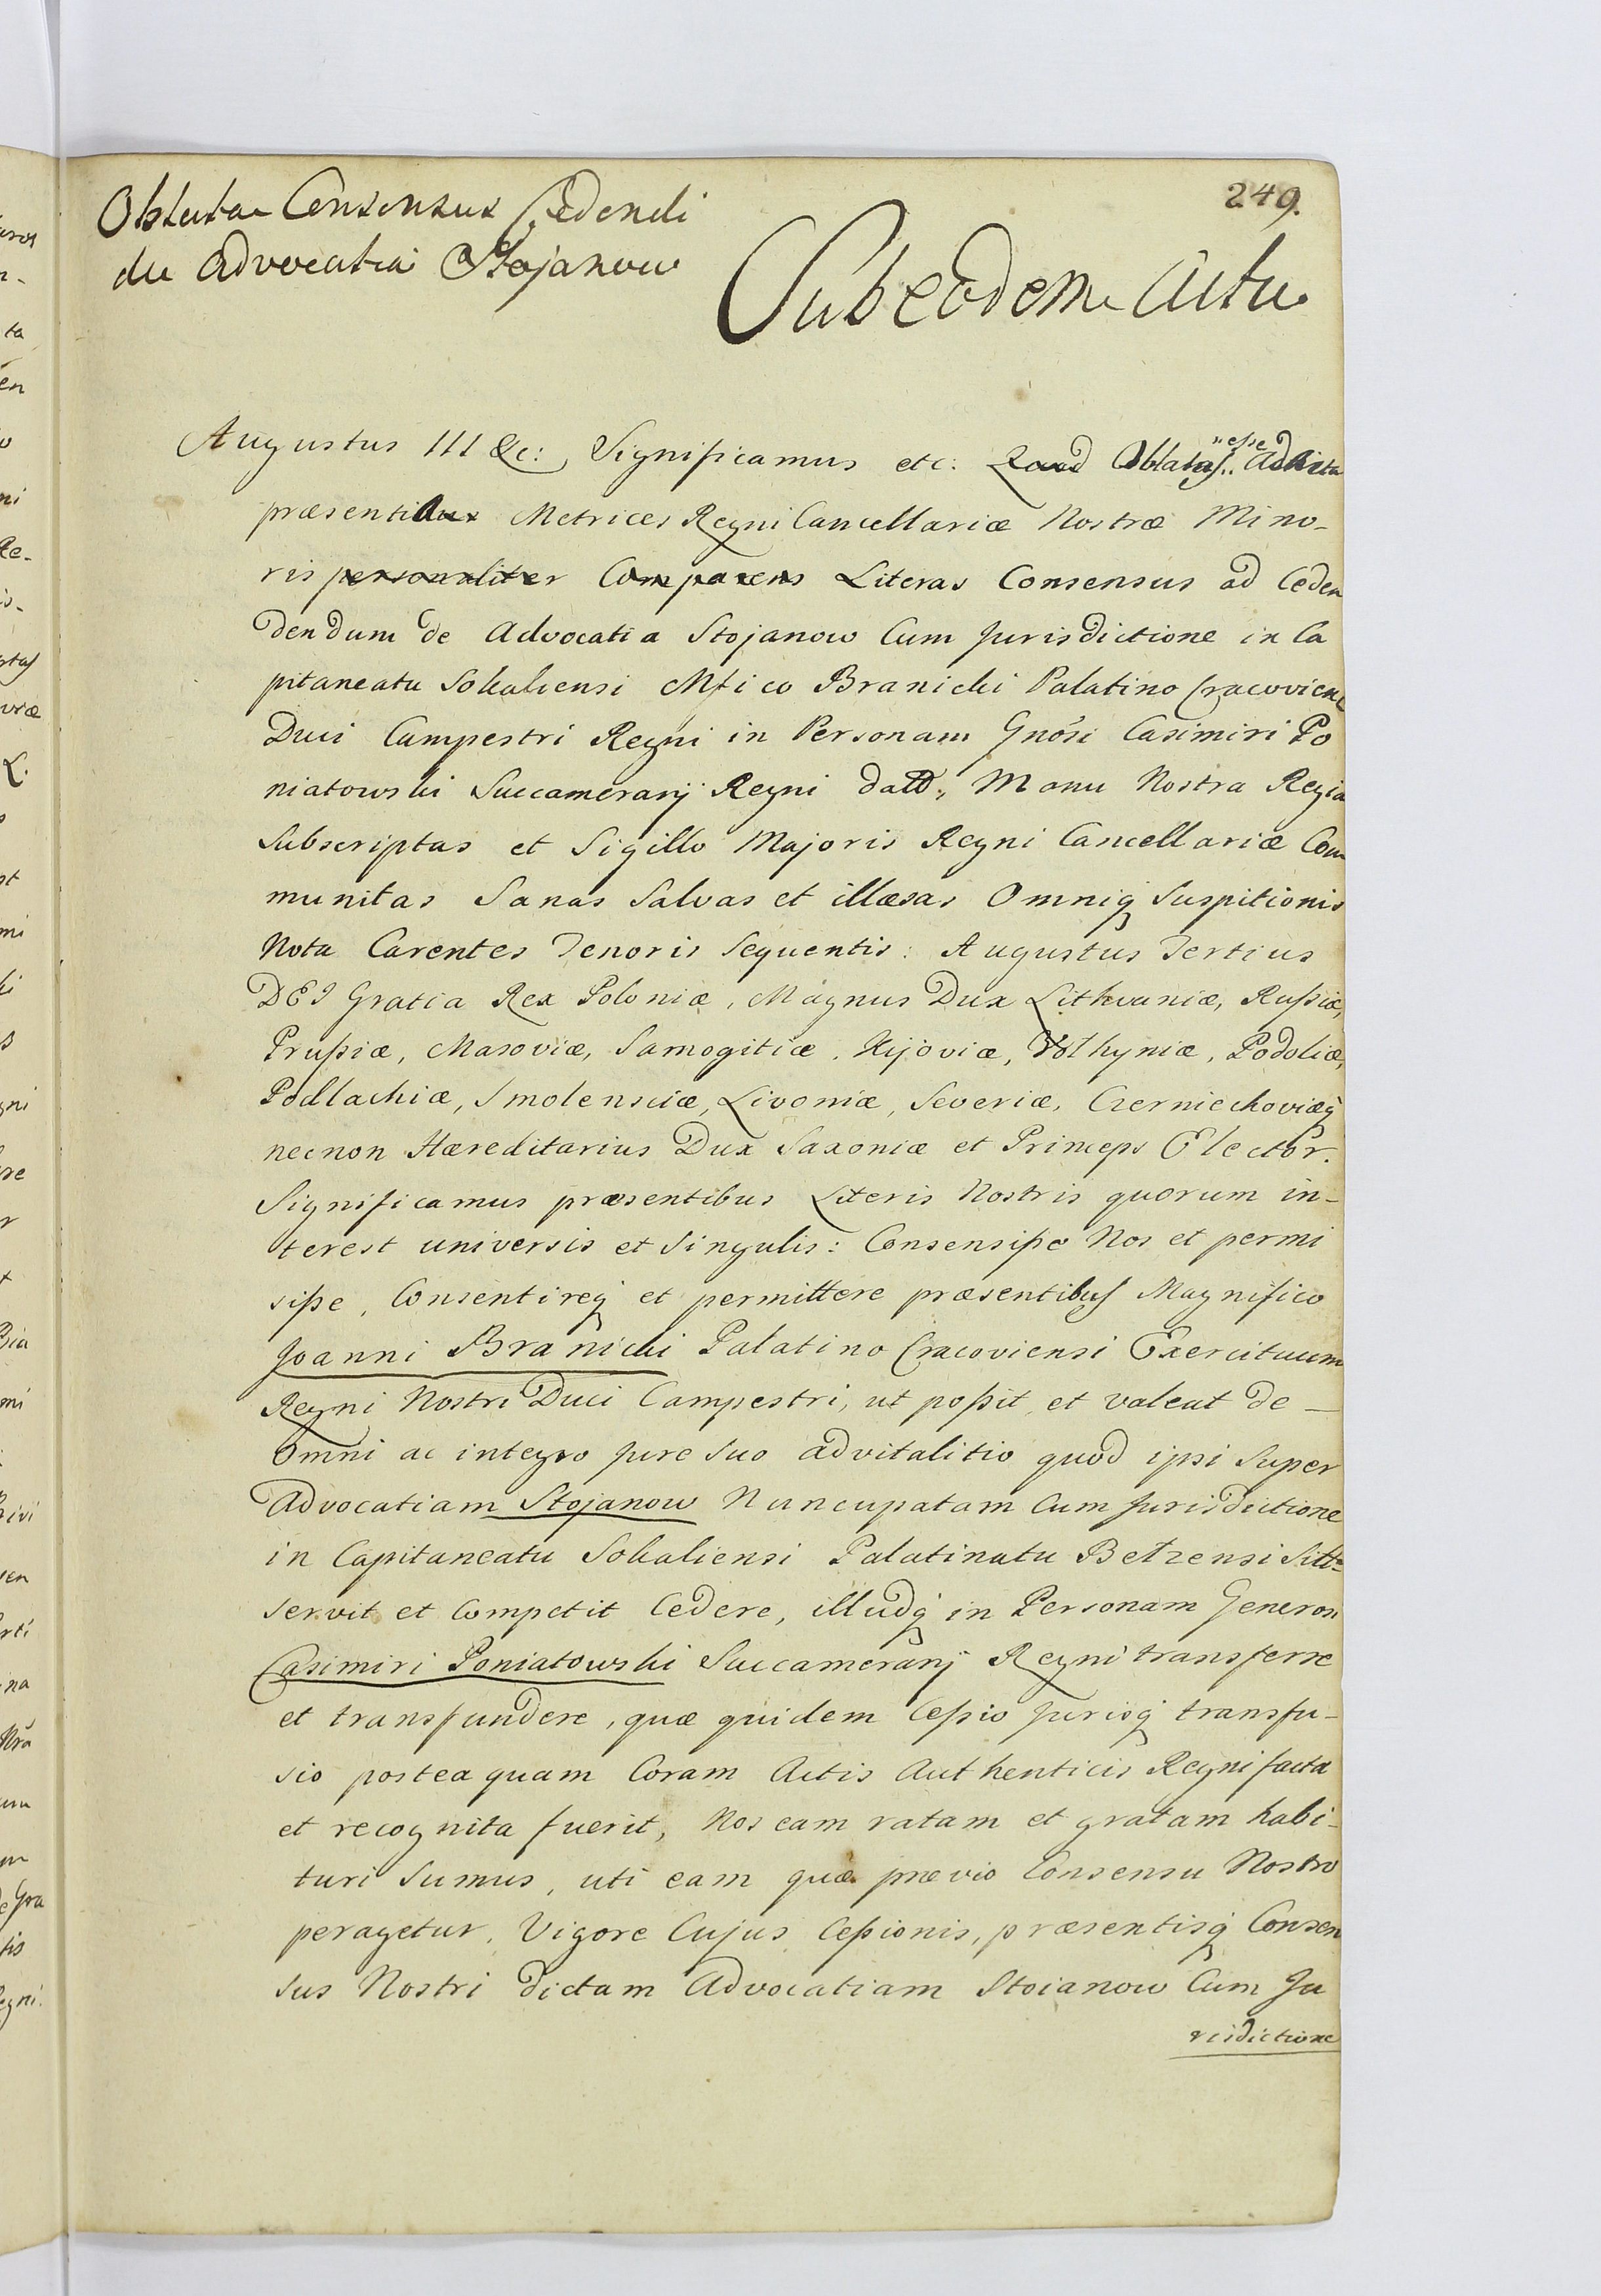 249.
Oblata Consensus Cedendi
de Advocatia Stojanow
Sub eodem Actu
Augustus III &c: Significamus etc. Quod Oblatas esse ad Acta
præsentibus Metrices Regni Cancellariæ Nostræ Mino-
ris personaliter Comparens Literas Consensus ad Ceden
dendum de Advocatia Stojanow Cum Jurisdictione in Ca
pitaneatu Sokaliensi Mfico Branicki Palatino Cracovien
Duci Campestri Regni in Personam Gnosi Casimiri Po
niatowski Succamerarij Regni datt, Manu Nostra Regia
Subscriptas et Sigillo Majoris Regni Cancellariæ Com
munitas Sanas Salvas et illæsas Omniq Suspitionis
Nota Carentes Tenoris Sequentis: Augustus Tertius
DEI Gratia Rex Poloniæ, Magnus Dux Lithvaniæ, Rußiæ,
Prußiæ, Masoviæ, Samogitiæ, Kijoviæ, Volhyniæ, Podoliæ,
Podlachiæ, Smolensciæ, Livoniæ, Severiæ, Czerniechoviæq
necnon Hæreditarius Dux Saxoniæ et Princeps Elector.
Significamus præsentibus Literis Nostris quorum in-
terest universis et Singulis: Consensiße Nos et permi
siße, Consentireq et permittere præsentibus Magnifico
Joanni Branicki Palatino Cracoviensi Exercituum
Regni Nostri Duci Campestri, ut poßit, et valeat de –
omni ac integro Jure Suo advitalitio quod ipsi Super
Advocatiam Stojanow Nuncupatam Cum Jurisdictione
in Capitaneatu Sokaliensi Palatinatu Betzensi Sitt
servit et Competit Cedere, illudq in Personam Generosi
Casimiri Poniatowski Succamerarij Regni transferre
et transfundere, quæ quidem Ceßio Jurisq transfu-
sio postea quam Coram Actis Authenticis Regni facta
et recognita fuerit, Nos eam ratam et gratam habi-
turi Sumus, uti eam quæ prævio Consensu Nostro
peragetur. Vigore Cujus Ceßionis, præsentisq Consen
sus Nostri dictam Advocatiam Stoianow Cum Ju
risdictione